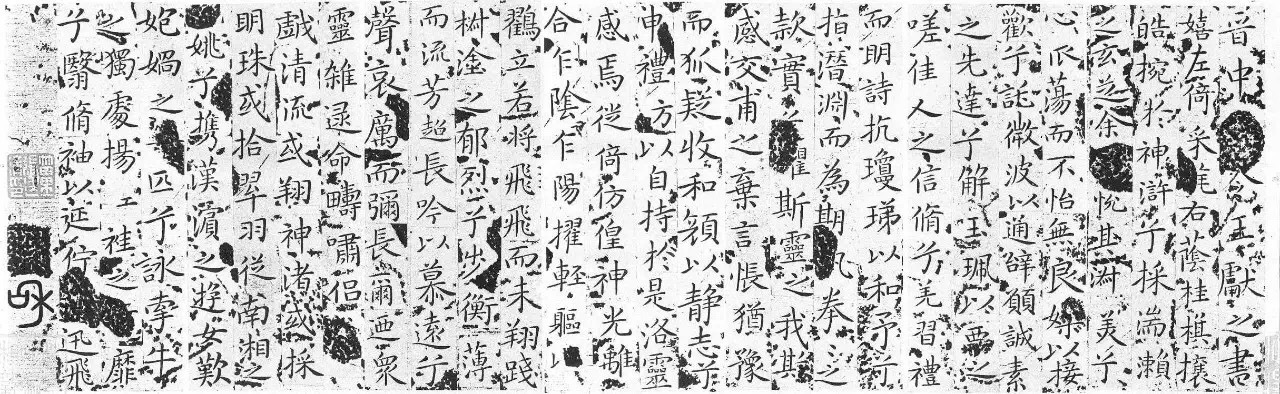 晋中令王獻之書
嬉左倚采旄右蔭桂旗攘
皓捥於神滸兮採湍瀨
之玄芝余悅其淑美兮
心振蕩而不怡無良媒以接
歡兮託微波以通辞願誠素
之先達兮解玉珮以要之
嗟佳人之信脩兮羌習禮
而明詩抗瓊珶以和予兮
指潛淵而為期執拳拳之
款實兮懼斯靈之我欺
感交甫之棄言悵猶豫
而狐疑收和顏以静志兮
申禮方以自持於是洛靈
感焉徙倚仿偟神光離
合乍陰乍陽擢輕軀以
鶴立若將飛飛而未翔踐
椒塗之郁烈兮步衡薄
而流芳超長吟以慕遠兮
聲哀厲而彌長爾迺眾
靈雜遝命疇嘯侶
戲清流或翔神渚或採
明珠或拾翠羽從南湘之
姚兮攜漢濱之遊女歎
妃媧之無匹兮詠牽牛
之獨處揚之靡
兮翳脩袖以延佇迅飛